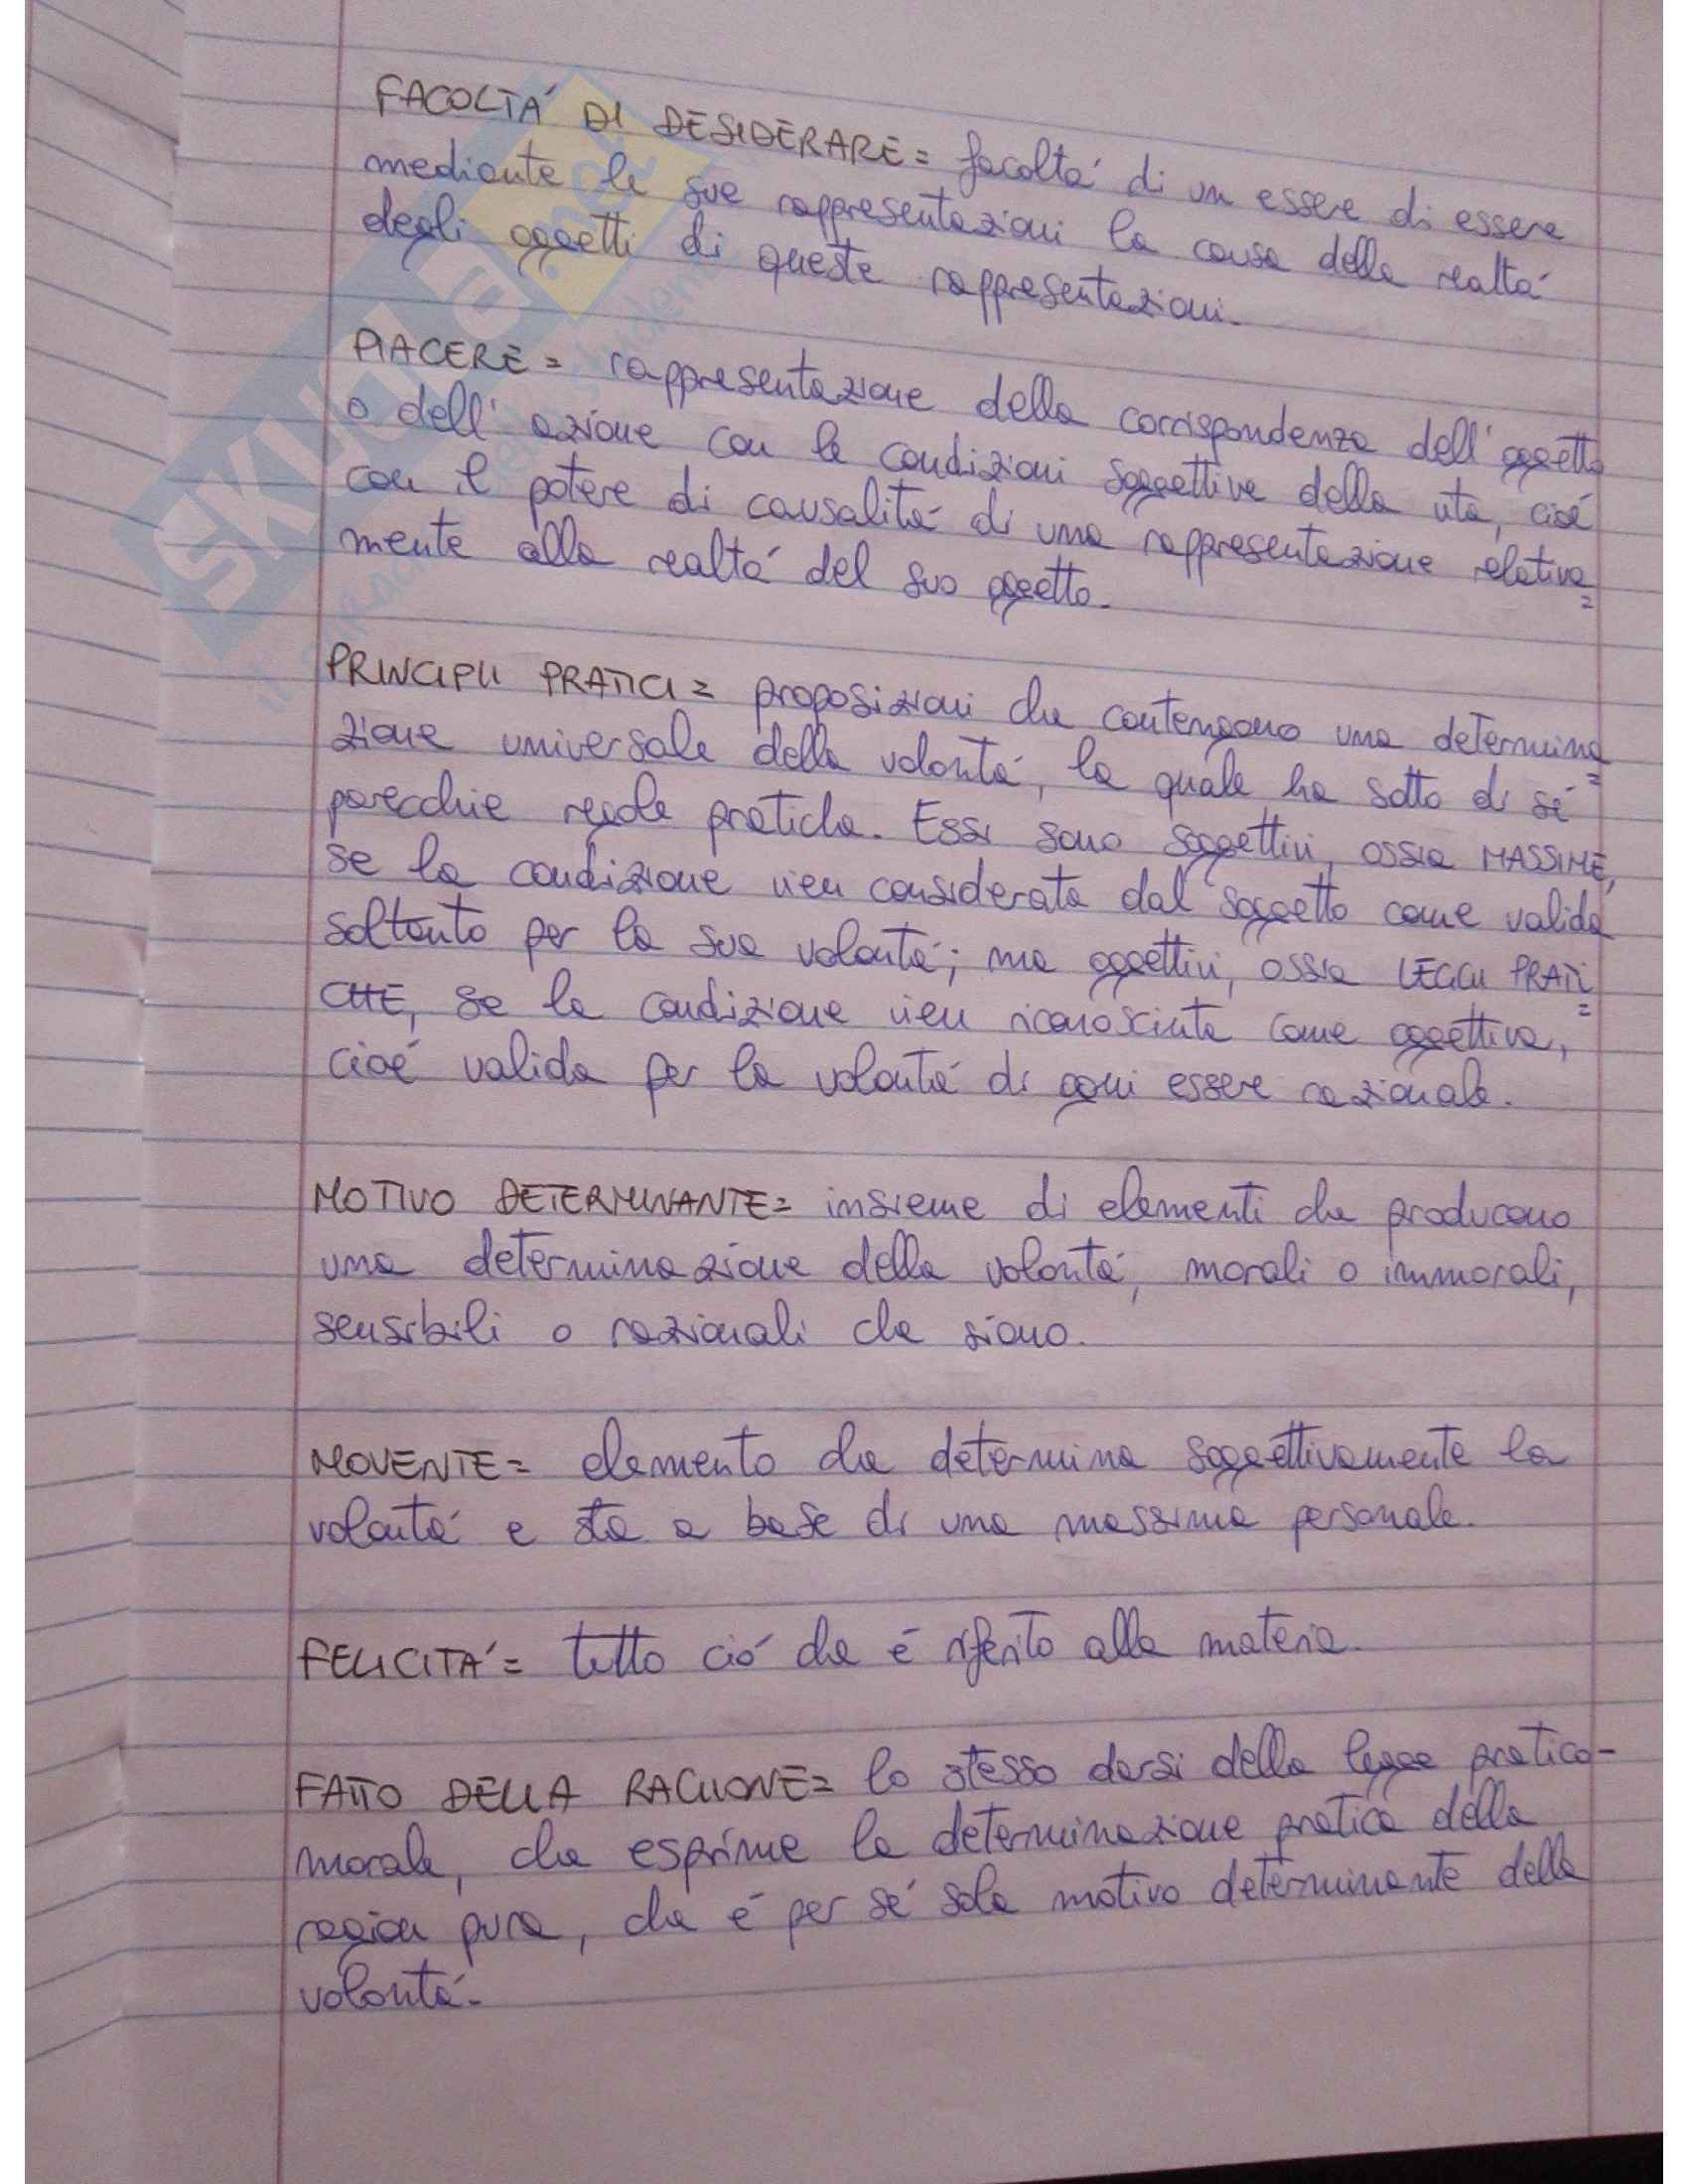 FACOLTÁ DI DESIDERARE = facoltá di un essere di essere
mediante le sue rappresentazioni la causa della realtá
degli oggetti di queste rappresentazioni.
PIACERE = rappresentazione della corrispondenza dell'oggetto
o dell'azione con le condizioni soggettive della vita, cioé
con il potere di causalitá di una rappresentazione relativa=
mente alla realtá del suo oggetto.
PRINCIPII PRATICI = proposizioni che contengono una determina=
zione universale della volontá, la quale ha sotto di sé
parecchie regole pratiche. Essi sono soggettivi, ossia MASSIME,
se la condizione vien considerata dal soggetto come valida
soltanto per la sua volontá; ma oggettivi, ossia LEGGI PRATI=
CHE, se la condizione vien riconosciuta come oggettiva,
cioé valida per la volontá di ogni essere razionale.
MOTIVO DETERMINANTE = insieme di elementi che producono
una determinazione della volontá, morali o immorali,
sensibili o razionali che siano.
MOVENTE = elemento che determina soggettivamente la
volontá e sta a base di una massima personale.
FELICITÁ = tutto ció che é riferito alla materia.
FATTO DELLA RAGIONE = lo stesso darsi della legge pratico-
morale, che esprime la determinazione pratica della
ragion pura, che é per sé sola motivo determinante della
volontá.
SKUOLA.net